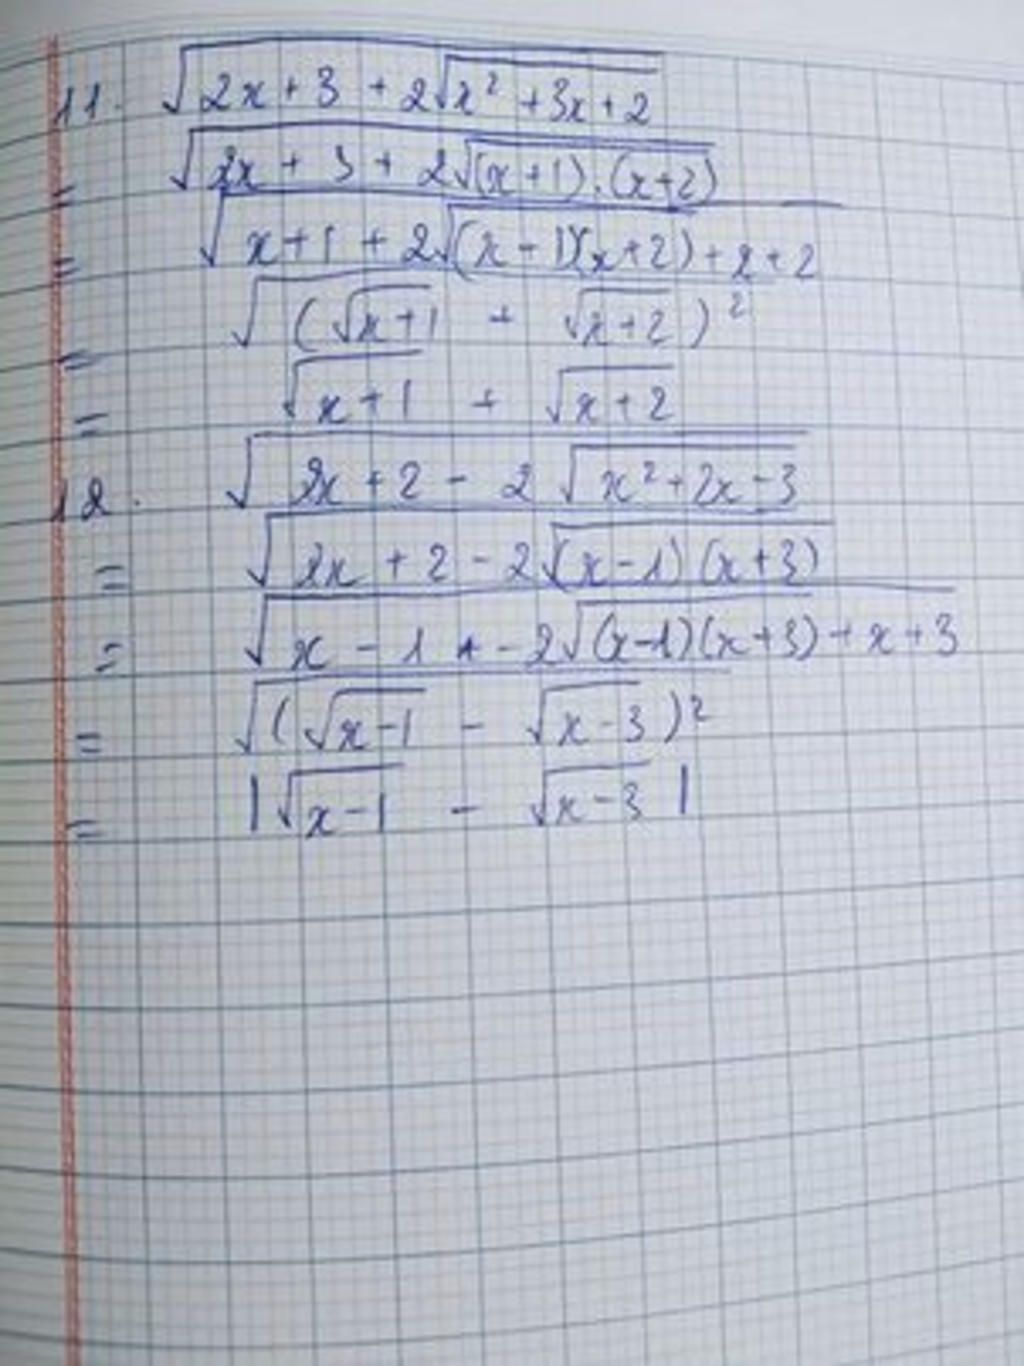 11. √(2x+3 + 2√(x² +3x+2))
= √(2x + 3 + 2√((x+1).(x+2)))
= √(x+1 + 2√((x+1)(x+2)) + x + 2)
= √((√(x+1) + √(x+2))²)
= √(x+1) + √(x+2)
12. √(2x+2 - 2√(x²+2x-3))
= √(2x + 2 - 2√((x-1)(x+3)))
= √(x - 1 + -2√((x-1)(x+3)) + x + 3)
= √((√(x-1) - √(x-3))²)
= |√(x-1) - √(x-3)|